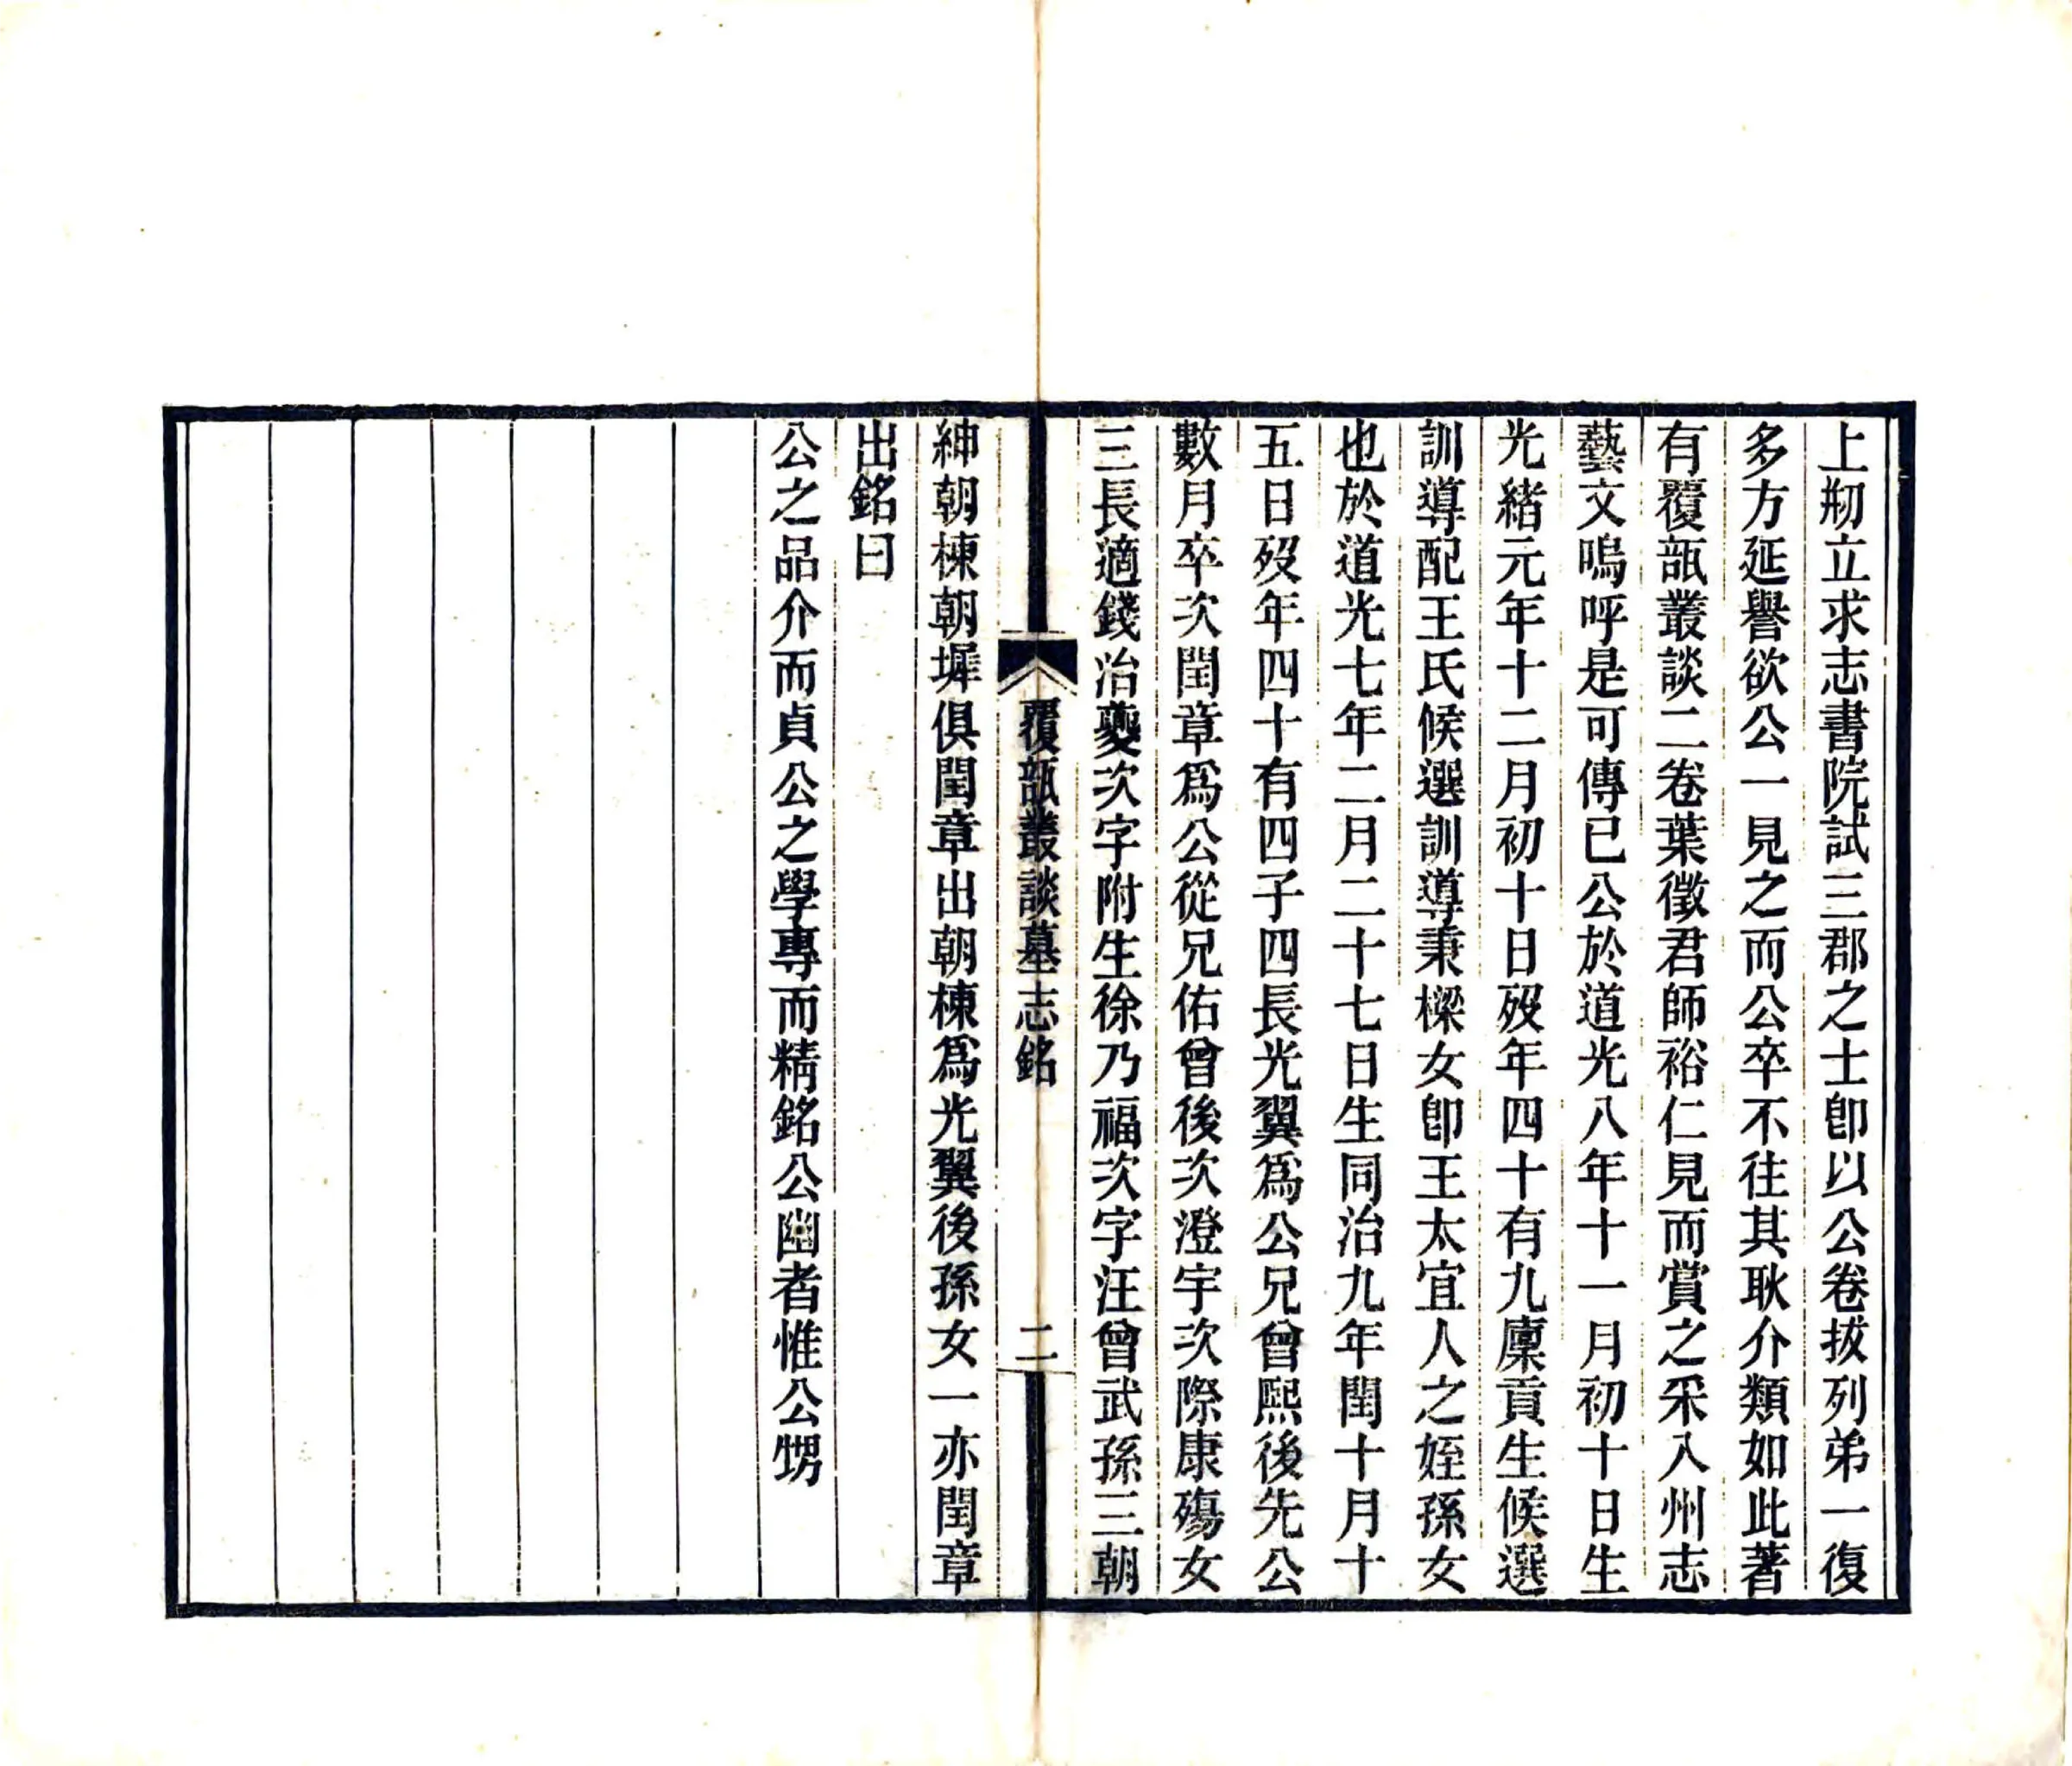 上剏立求志書院試三郡之士卽以公卷拔列弟一復
多方延譽欲公一見之而公卒不往其耿介類如此著
有覆瓿叢談二卷葉徵君師裕仁見而賞之采入州志
藝文嗚呼是可傳已公於道光八年十一月初十日生
光緒元年十二月初十日歿年四十有九廩貢生候選
訓導配王氏候選訓導秉樑女卽王太宜人之姪孫女
也於道光七年二月二十七日生同治九年閏十月十
五日歿年四十有四子四長光翼爲公兄曾熙後先公
數月卒次閏章爲公從兄佑曾後次澄宇次際康殤女
三長適錢治夔次字附生徐乃福次字汪曾武孫三朝
覆瓿叢談墓志銘 二
紳朝棟朝墀俱閏章出朝棟爲光翼後孫女一亦閏章
出銘曰
公之品介而貞公之學專而精銘公幽者惟公甥